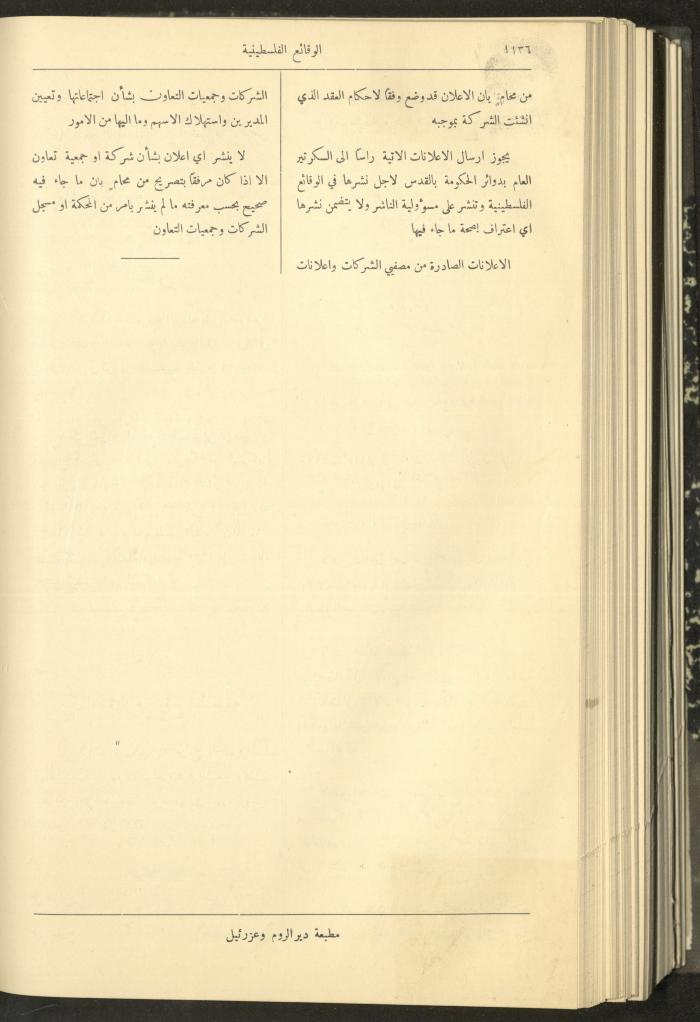 ١١٣٦
الوقائع الفلسطينية
من محامٍ بان الاعلان قدوضع وفقا لاحكام العقد الذي
انشئت الشركة بموجبه
يجوز ارسال الاعلانات الاتية راساً الى السكرتير
العام بدوائر الحكومة بالقدس لاجل نشرها في الوقائع
الفلسطينية وتنشر على مسوٴولية الناشر ولا يتضمن نشرها
اي اعتراف بصحة ما جاء فيها
الاعلانات الصادرة من مصفيي الشركات واعلانات
الشركات وجمعيات التعاون بشأن اجتماعاتها وتعيين
المديرين واستهلاك الاسهم وما اليها من الامور
لا ينشر اي اعلان بشأن شركة او جمعية تعاون
الا اذا كان مرفقا بتصريح من محامٍ بان ما جاء فيه
صحيح بحسب معرفته ما لم ينشر بامر من المحكمة او مسجل
الشركات وجمعيات التعاون
مطبعة ديرالروم وعزرئيل